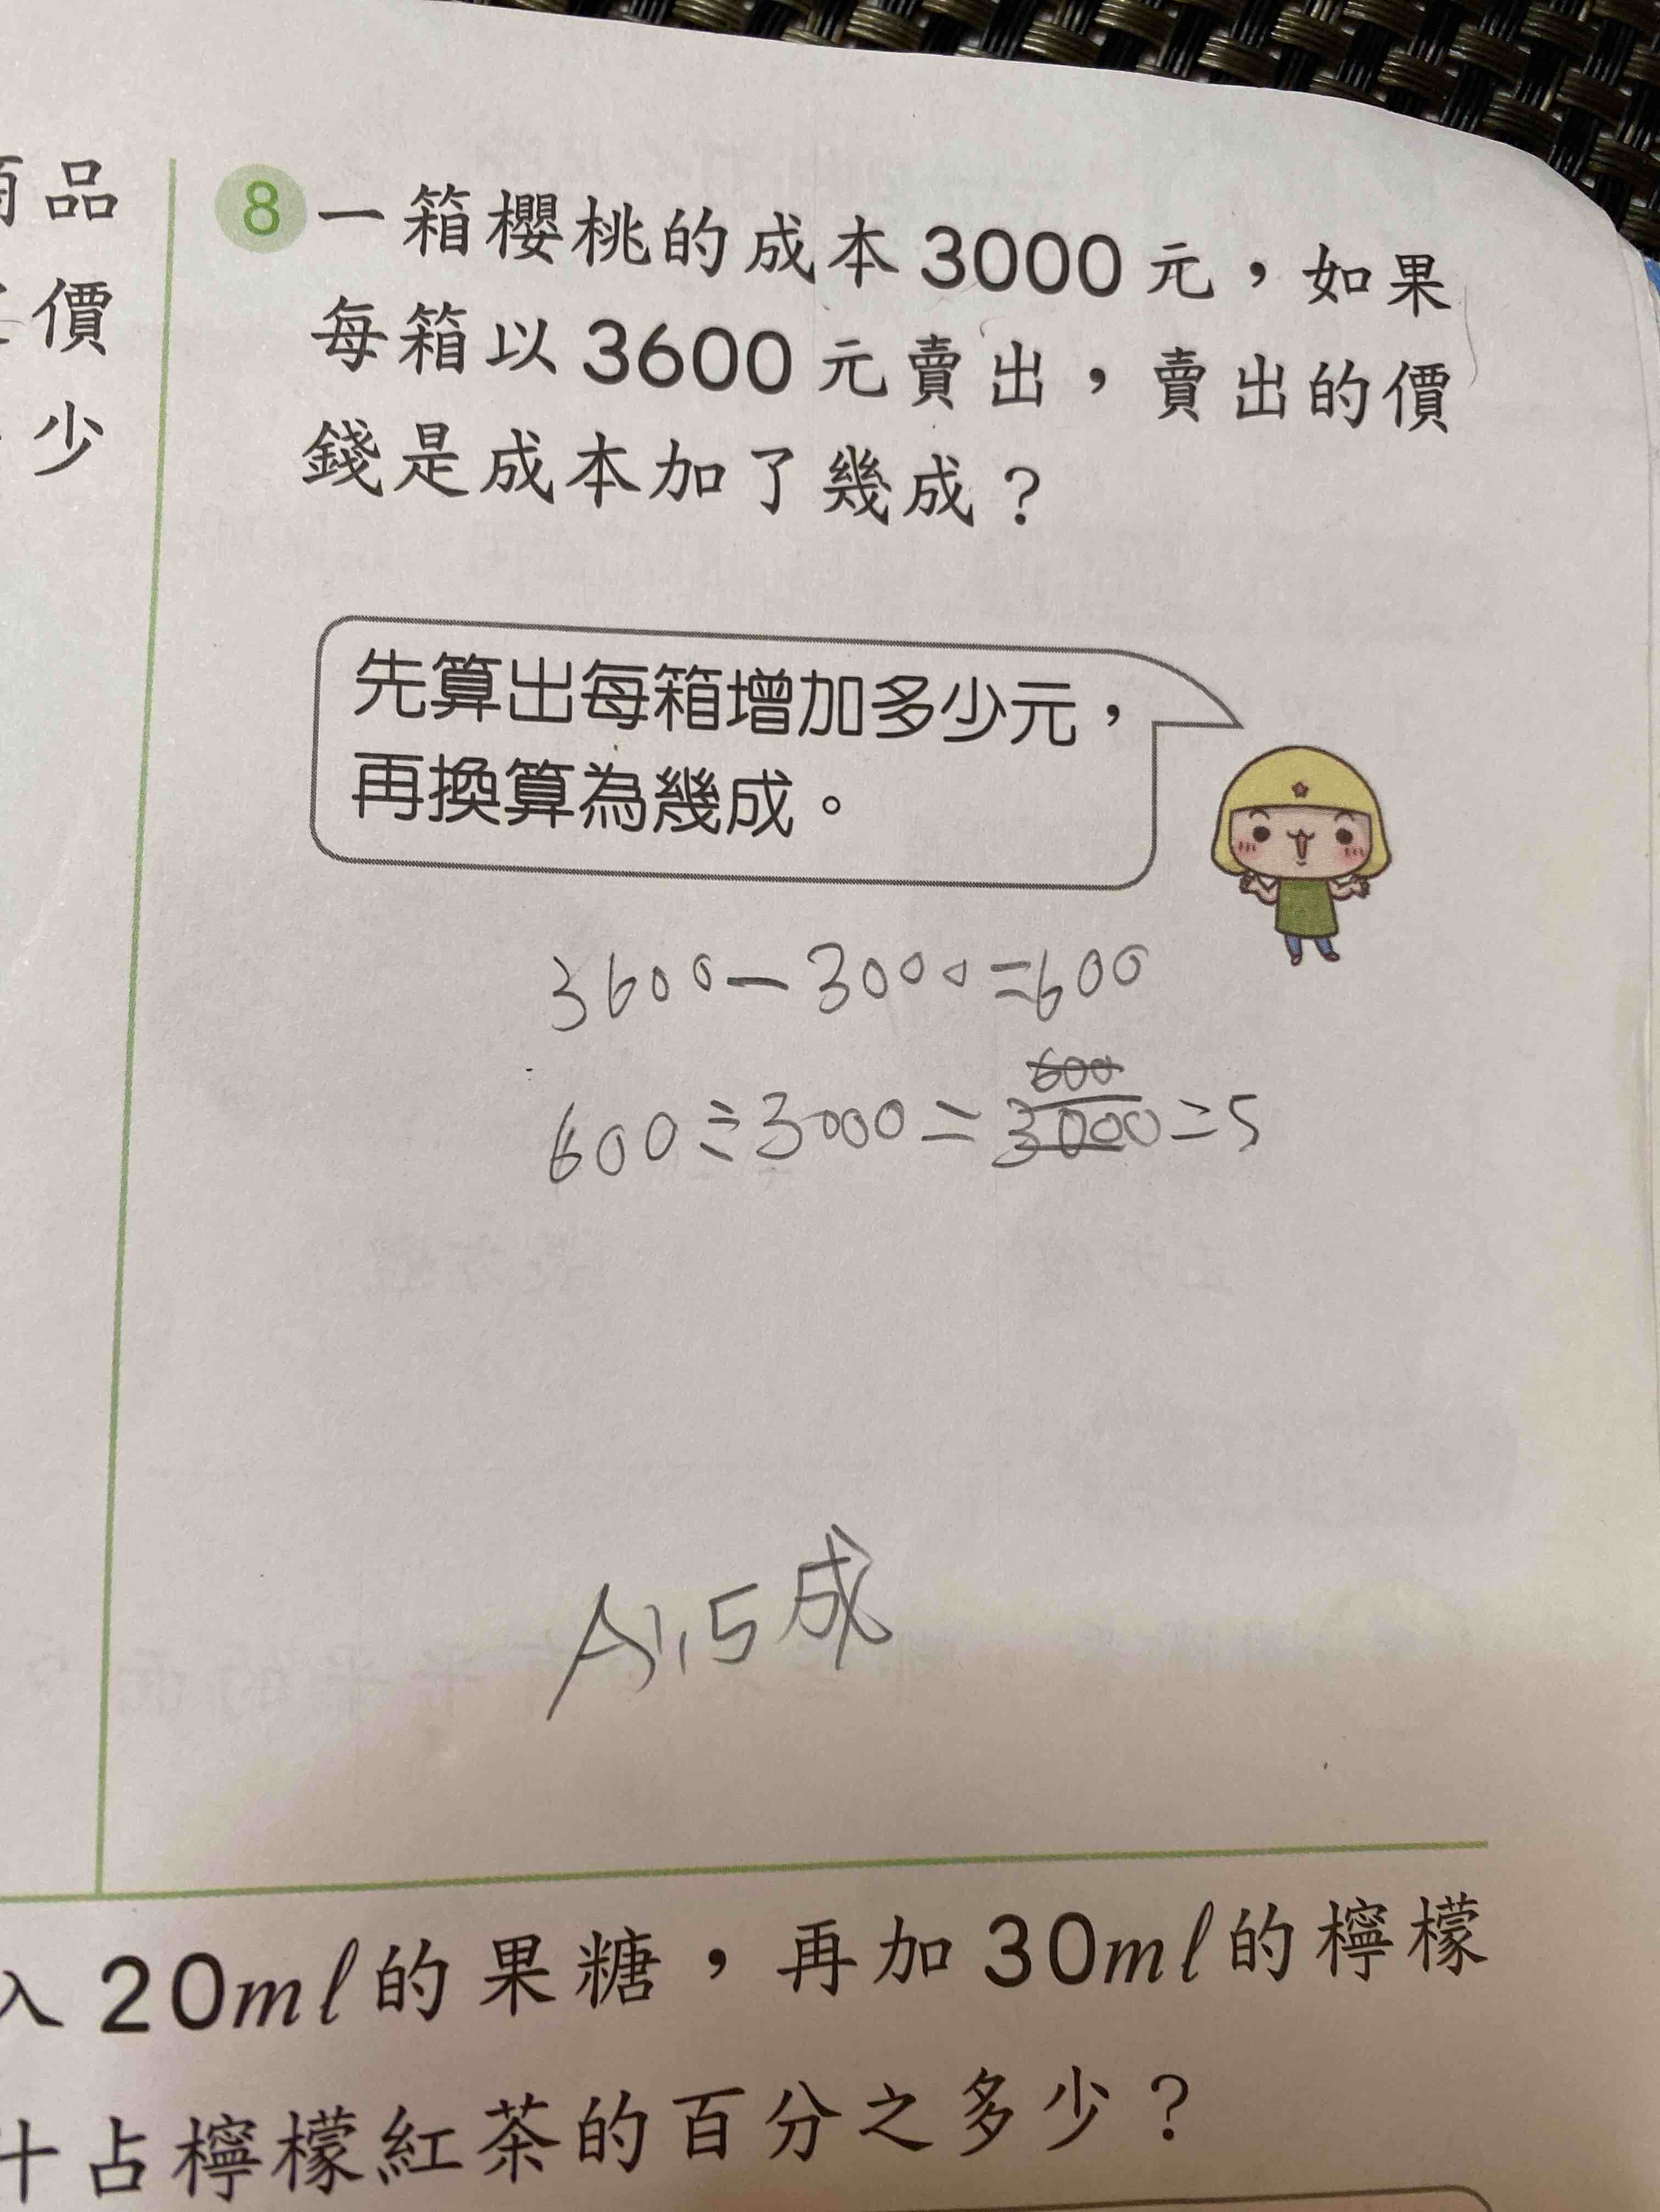 品
價
少
8 一箱櫻桃的成本3000元，如果
每箱以3600元賣出，賣出的價
錢是成本加了幾成？
先算出每箱增加多少元，
再換算為幾成。
3600-3000=600
600÷3000=600/3000=5
A:5成
入20mℓ的果糖，再加30mℓ的檸檬
汁占檸檬紅茶的百分之多少？